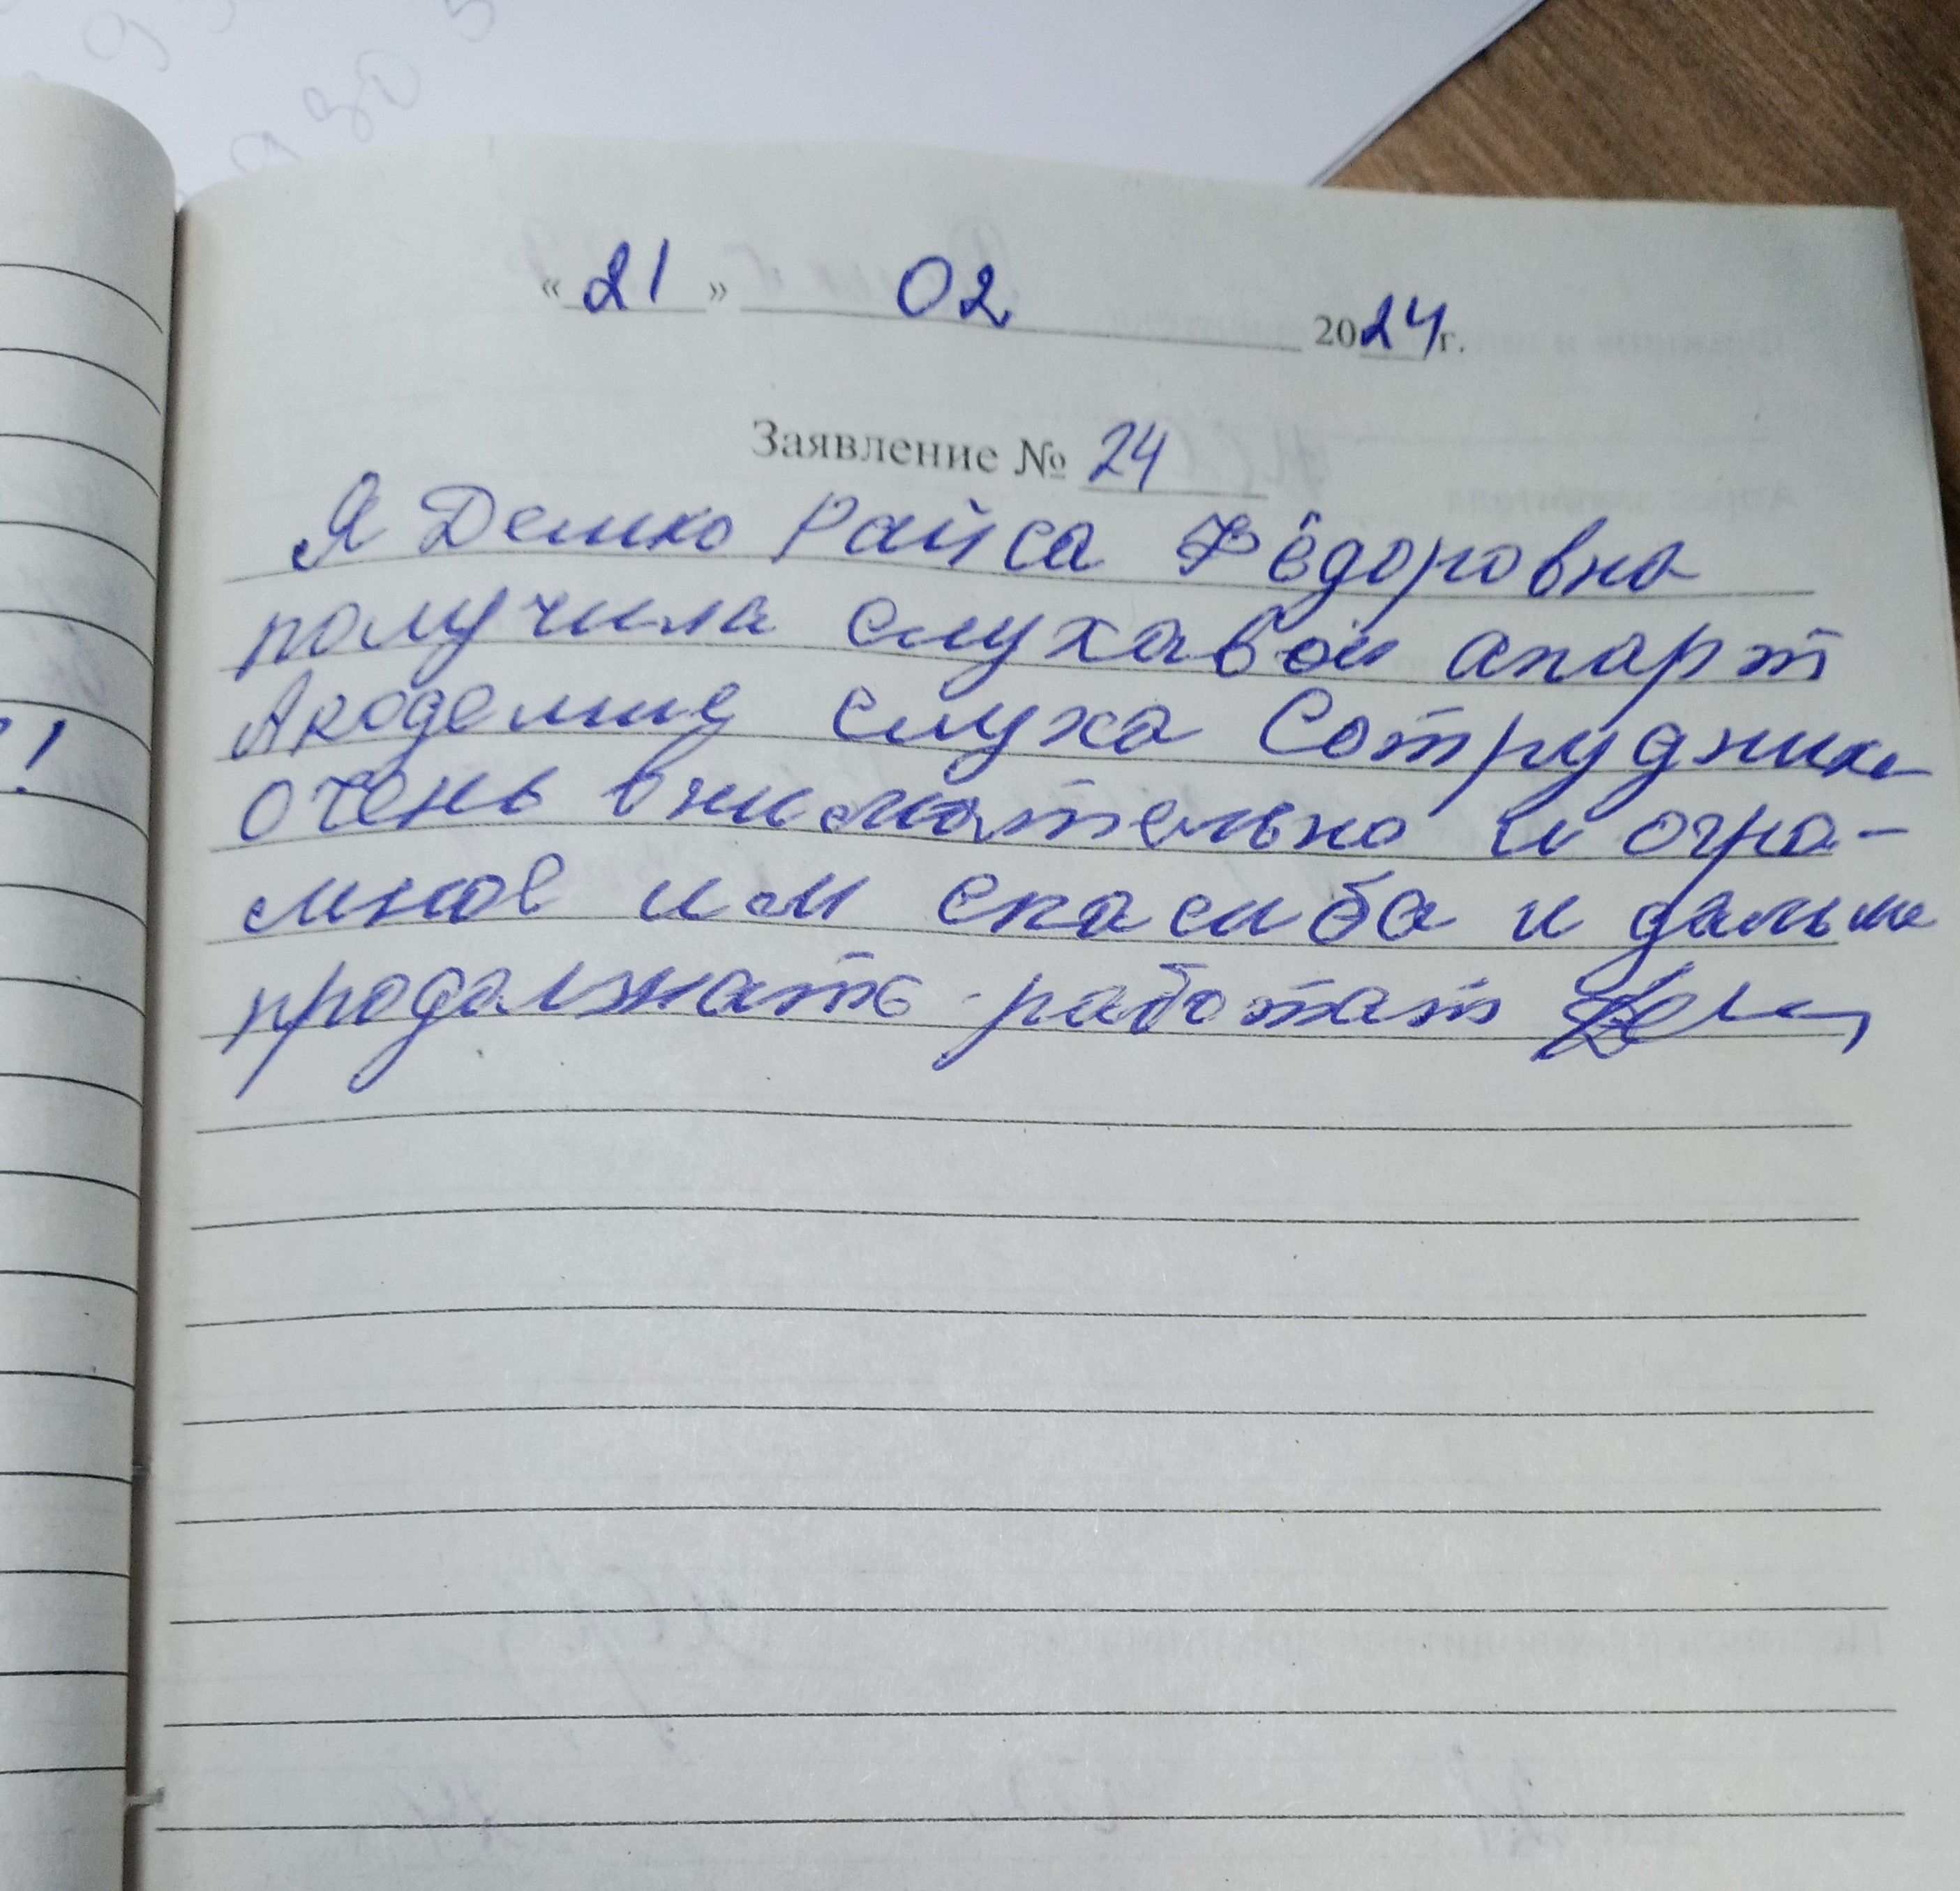 « 21 » 02 2024 г.
Заявление № 24
Я Демко Райса Фёдоровна
получила слухавой апарт
Академие слуха Сотрудники
очень внимательно и огра-
мное им спасиба и дальше
продалжать работат
!